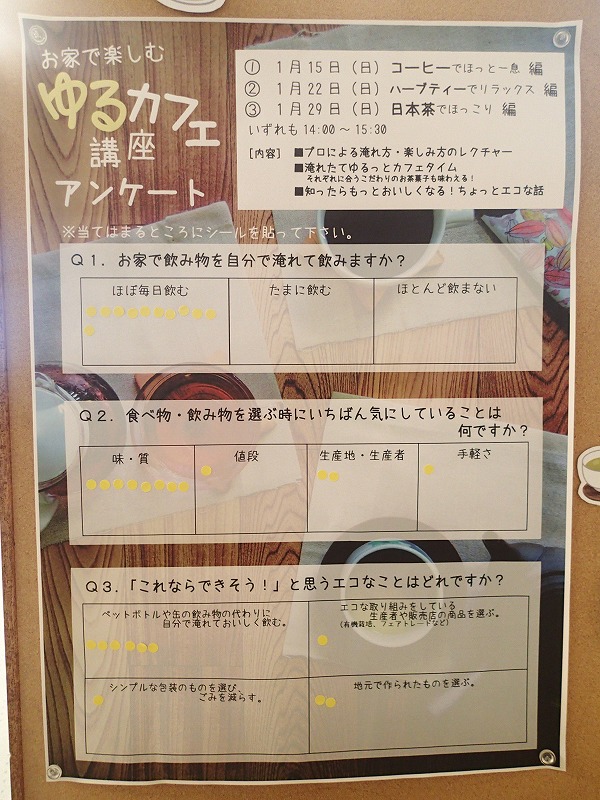 お家で楽しむ
ゆるカフェ
講座
アンケート
① 1月15日（日） コーヒーでほっと一息 編
② 1月22日（日） ハーブティーでリラックス 編
③ 1月29日（日） 日本茶でほっこり 編
いずれも 14:00～15:30
［内容］ ■プロによる淹れ方・楽しみ方のレクチャー
■淹れたてゆるっとカフェタイム
それぞれに合うこだわりのお茶菓子も味わえる！
■知ったらもっとおいしくなる！ちょっとエコな話
※当てはまるところにシールを貼って下さい。
Q1．お家で飲み物を自分で淹れて飲みますか？
ほぼ毎日飲む たまに飲む ほとんど飲まない
Q2．食べ物・飲み物を選ぶ時にいちばん気にしていることは
何ですか？
味・質 値段 生産地・生産者 手軽さ
Q3．「これならできそう！」と思うエコなことはどれですか？
ペットボトルや缶の飲み物の代わりに
自分で淹れておいしく飲む。
エコな取り組みをしている
生産者や販売店の商品を選ぶ。
（有機栽培、フェアトレードなど）
シンプルな包装のものを選び、
ごみを減らす。
地元で作られたものを選ぶ。